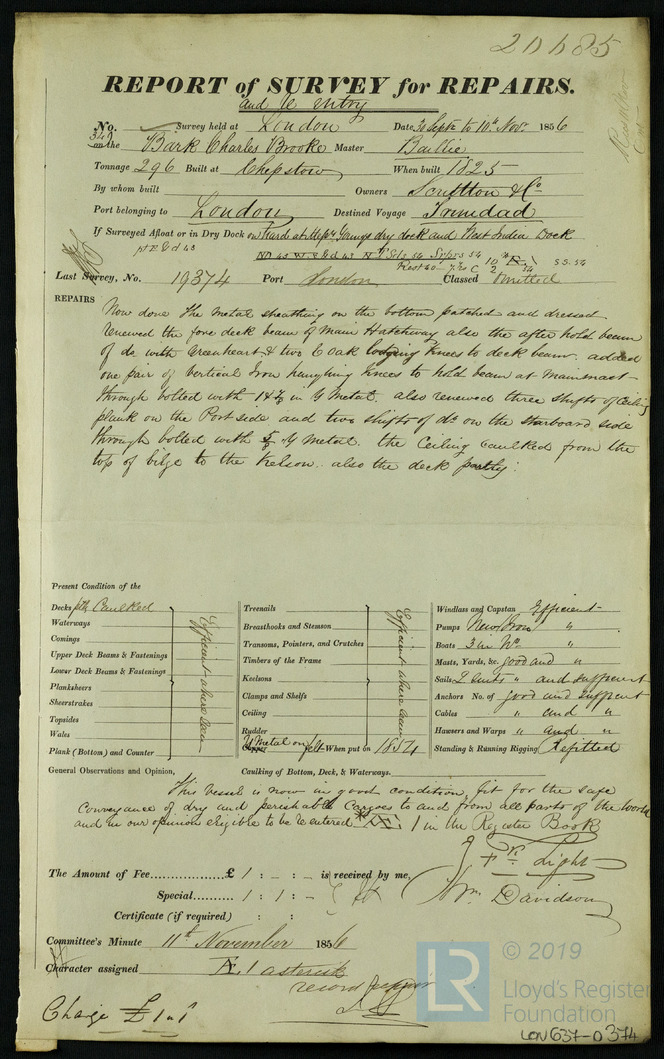 20685
REPORT of SURVEY for REPAIRS.
and Re entry
No. Survey held at London Date, 30 Septr to 10th Novr. 1856
342 on the Bark Charles Brooke Master Baillie
Tonnage 296 Built at Chepstow When built 1825
By whom built Owners Scrutton & Co
Port belonging to London Destined Voyage Trinidad
If Surveyed Afloat or in Dry Dock on Hard at Messrs Youngs dry dock and West India Dock
Last Survey, No. 19374 Port London Classed Omitted
REPAIRS
Now done the metal sheathing on the bottom patched and dressed
renewed the fore deck beam of Main Hatchway also the after hold beam
of do with Greenheart & two E oak lodging Knees to deck beam. added
one pair of Vertical Iron hanging Knees to hold beam at Mainmast
through bolted with 1 & 7/8 in Y Metal. also renewed three shifts of Ceiling
plank on the Port side and two shifts of do on the starboard side
through bolted with Y Metal. the Ceiling caulked from the
top of bilge to the Kelson. also the deck partly.
Present Condition of the
Decks ptly Caulked
Waterways
Comings
Upper Deck Beams & Fastenings
Lower Deck Beams & Fastenings
Planksheers
Sheerstrakes
Topsides
Wales
Plank (Bottom) and Counter
Efficient where seen
Treenails
Breasthooks and Stemson
Transoms, Pointers, and Crutches
Timbers of the Frame
Keelsons
Clamps and Shelfs
Ceiling
Rudder
Copper Y Metal on felt When put on 1854
Efficient where seen
Windlass and Capstan Efficient
Pumps New Iron "
Boats 3 in No "
Masts, Yards, &c. good and "
Sails 2 Suits " and sufficient
Anchors No. of good and sufficient
Cables " and "
Hawsers and Warps " and "
Standing & Running Rigging Refitted
General Observations and Opinion, Caulking of Bottom, Deck, & Waterways.
This vessel is now in good condition, fit for the safe
conveyance of dry and perishable Cargoes to and from all parts of the World
and in our opinion eligible to be re entered * Æ 1 in the Register Book
Light
Wm Davidson
The Amount of Fee £ 1 : - : - is received by me,
Special 1 : 1 : -
Certificate (if required) : :
Committee's Minute 11th November 1856
Character assigned Æ. 1 asterisk
record repair
Charge £ 1 " 1 "
LR
© 2019
Lloyd's Register
Foundation
LON637-0374